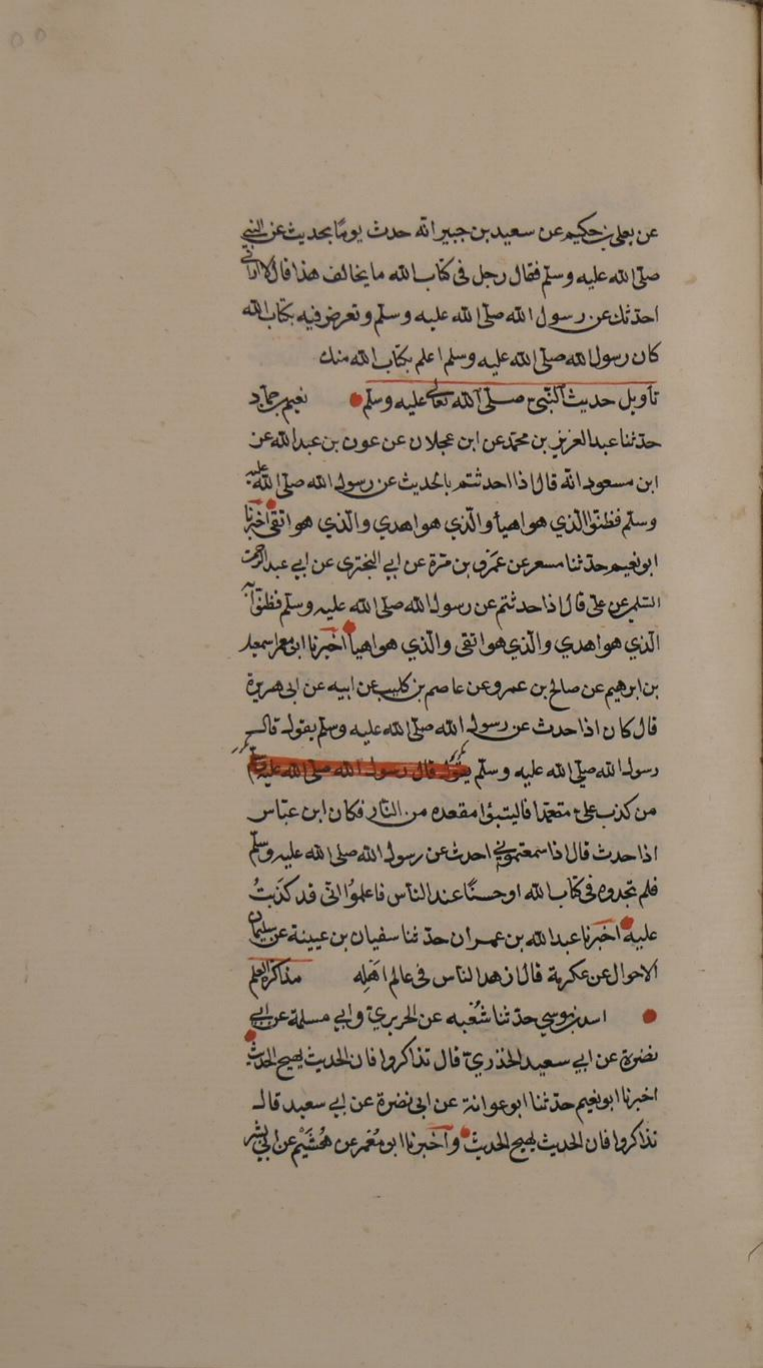 عن يعلى بن حكيم عن سعيد بن جبير انه حدث يومًا بحديث عن النبي
صلى الله عليه وسلم فقال رجل فى كتاب الله ما يخالف هذا قال الا اراني
احدثك عن رسول الله صلى الله عليه وسلم وتعرض فيه بكتاب الله
كان رسول الله صلى الله عليه وسلم اعلم بكتاب الله منك
تأويل حديث النبي صلى الله تعالى عليه وسلم نعيم بن حماد
حدثنا عبد العزيز بن محمد عن ابن عجلان عن عون بن عبد الله عن
ابن مسعود انه قال اذا احدثتم بالحديث عن رسول الله صلى الله عليه
وسلم فظنوا الذي هو اهيأ والذي هو اهدي والذي هو اتقى اخبرنا
ابو نعيم حدثنا مسعر عن عمرو بن مرة عن ابي البخترى عن ابي عبد الرحمن
السلمي عن على قال اذا حدثتم عن رسول الله صلى الله عليه وسلم فظنوا به
الذي هو اهدي والذي هو اتقى والذي هو اهيأ اخبرنا ابو معمر اسمعيل
بن ابرهيم عن صالح بن عمرو عن عاصم بن كليب عن ابيه عن ابى هريرة
قال كان اذا حدث عن رسول الله صلى الله عليه وسلم يقول قال
رسول الله صلى الله عليه وسلم يقول قال رسول الله صلى الله عليه وسلم
من كذب على متعمدا فاليتبؤا مقعده من النار فكان ابن عباس
اذا حدث قال اذا سمعتموني احدث عن رسول الله صلى الله عليه وسلم
فلم تجدوه فى كتاب الله او حسنًا عند الناس فاعلموا انى قد كذبتُ
عليه اخبرنا عبد الله بن عمران حدثنا سفيان بن عيينة عن سليمان
الاحوال عن عكرمة قال ازهد الناس فى عالم اهله مذاكرة العلم
اسد بن موسي حدثنا شعبه عن الحريري وابي مسلمة عن ابي
نضرة عن ابي سعيد الخذري قال تذاكروا فان الحديث يهيج الحديث
اخبرنا ابو نعيم حدثنا ابو عوانة عن ابى نضرة عن ابي سعيد قال
تذاكروا فان الحديث يهيج الحديث واخبرنا ابو معمر عن هُشَيْم عن ابي بشر